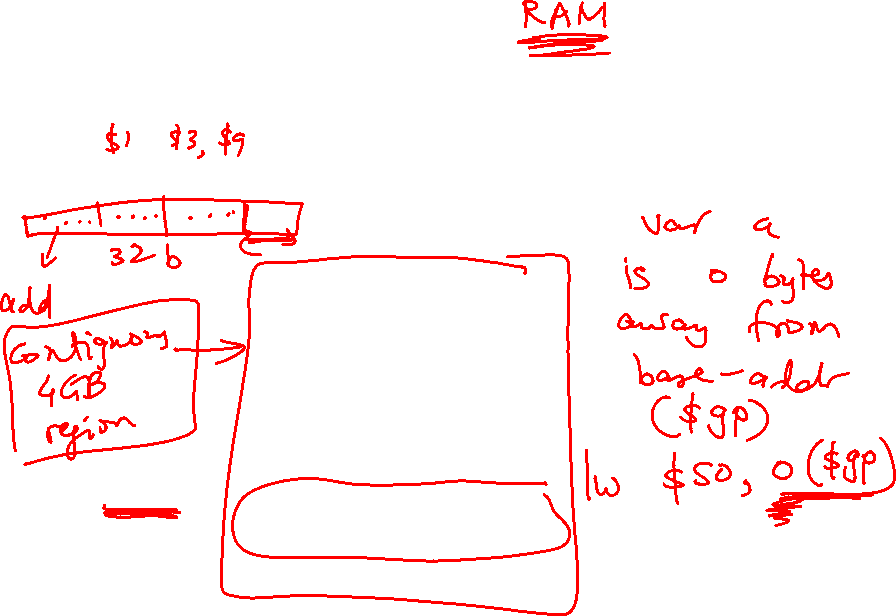 RAM
$1 $3, $9
32 b
add
contiguous
4GB
region
var a
is 0 bytes
away from
base-addr
($gp)
lw $s0, 0($gp)